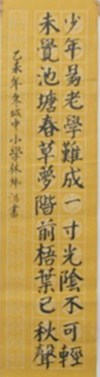 少年易老學難成一寸光陰不可輕
未覺池塘春草夢階前梧葉已秋聲
乙未年冬城中小學林
書